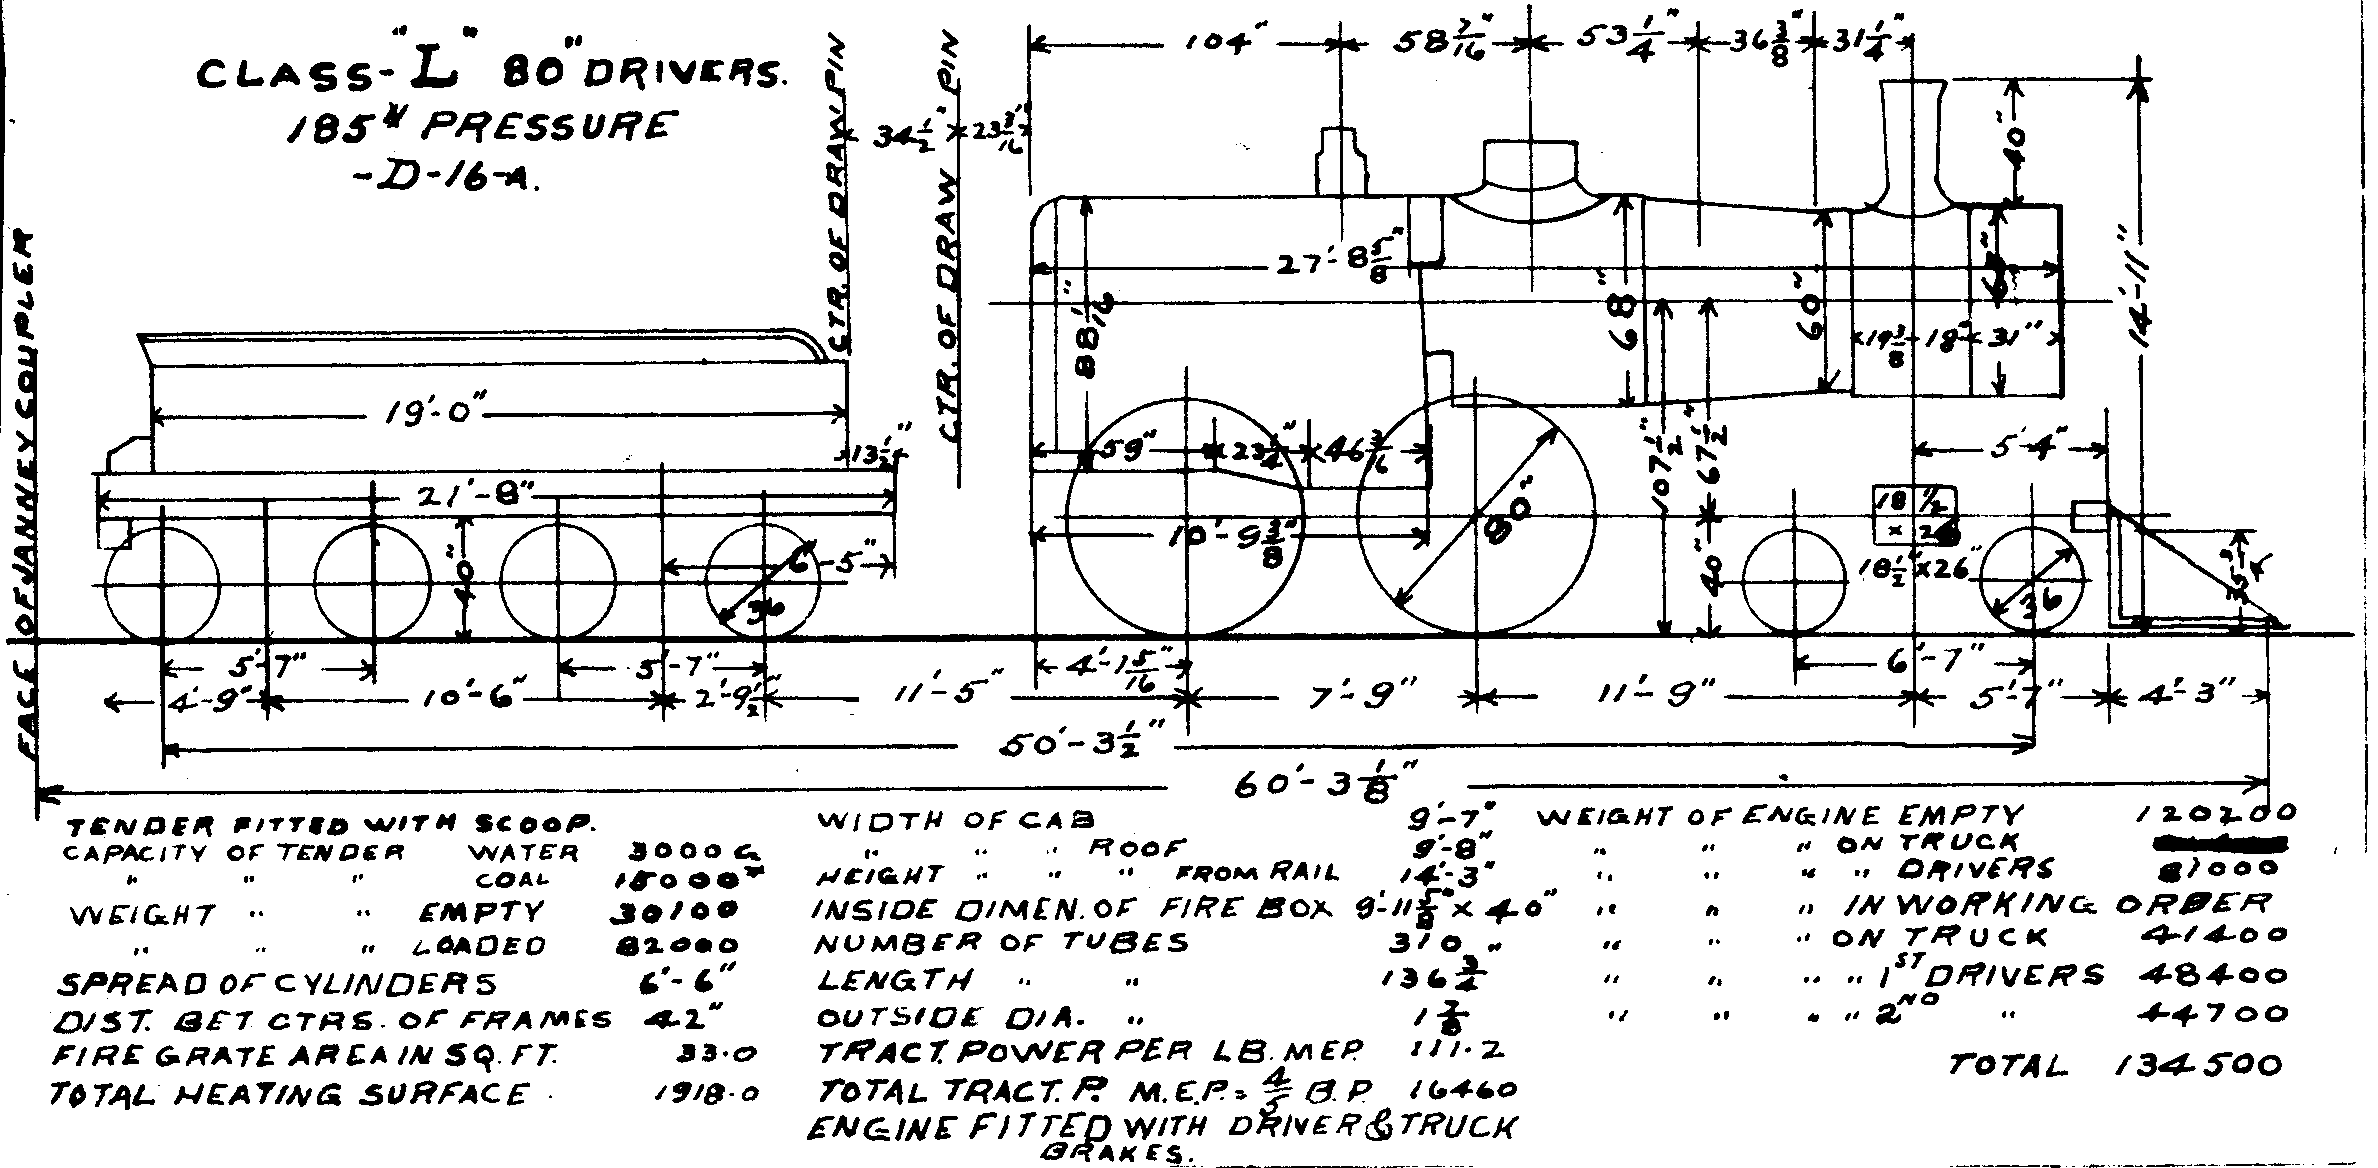 CLASS-"L" 80" DRIVERS.
185# PRESSURE
-D-16-A.
FACE OF JANNEY COUPLER
CTR. OF DRAW PIN
CTR. OF DRAW PIN
34 1/2"
23 3/16"
104"
58 7/16"
53 1/4"
36 3/8"
31 1/4"
40"
14'-11"
27'-8 5/8"
88 1/16"
68"
60"
19 3/8
18"
31"
19'-0"
13 1/2"
21'-8"
40"
6'-5"
36
59"
23 1/4"
46 3/16
10'-9 3/8"
80"
107 1/2"
67 1/2"
40"
5'-4"
18 1/2
18 1/2" x 26"
36
5'-7"
5'-7"
4'-1 5/16"
6'-7"
4'-9"
10'-6"
2'-9 1/2"
11'-5"
7'-9"
11'-9"
5'-7"
4'-3"
50'-3 1/2"
60'-3 1/8"
TENDER FITTED WITH SCOOP.
CAPACITY OF TENDER WATER 3000 G
" " " COAL 15000#
WEIGHT " " EMPTY 30100
" " " LOADED 82000
SPREAD OF CYLINDERS 6'-6"
DIST. BET. CTRS. OF FRAMES 42"
FIRE GRATE AREA IN SQ. FT. 33.0
TOTAL HEATING SURFACE 1918.0
WIDTH OF CAB 9'-7"
" " " ROOF 9'-8"
HEIGHT " " " FROM RAIL 14'-3"
INSIDE DIMEN. OF FIRE BOX 9'-11 5/8" x 40"
NUMBER OF TUBES 310
LENGTH " " 136 3/4"
OUTSIDE DIA. " 1 7/8
TRACT. POWER PER LB. M.E.P. 111.2
TOTAL TRACT. P. M.E.P. = 4/5 B.P. 16460
ENGINE FITTED WITH DRIVER & TRUCK
BRAKES.
WEIGHT OF ENGINE EMPTY 120200
" " " ON TRUCK
" " " " DRIVERS 81000
" " " IN WORKING ORDER
" " " ON TRUCK 41400
" " " " 1ST DRIVERS 48400
" " " " 2ND " 44700
TOTAL 134500